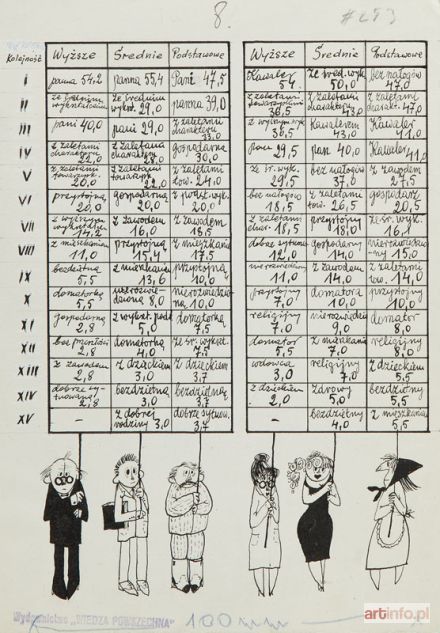 8.
#253
Kolejność
Wyższe Średnie Podstawowe
Wyższe Średnie Podstawowe
I panna 54,2 panna 55,4 Pani 47,5
Kawaler 54. ze śred. wyk. 50,0 bez nałogów 47,0
II ze średnim wykształceniem ze średnim wykszt. 21,0 panna 39,0
z zaletami towarzyskimi 36,5 z zaletami charakteru 43,0 z zaletami charakt. 47,0
III pani 40,0 pani 29,0 z zaletami charakteru
z wyższym wyk. 36,5 Kawalerem 43,0 Kawaler 41,0
IV z zaletami charakteru 22,0 z zaletami charakter. 28,0 gospodarna 30,0
Pan 29,5 pan 40,0 Kawaler 41,0
V z zaletami towarzysk. 20,0 z zaletami towarzysk. 22,0 z zaletami tow. 24,0
ze śr. wyk. 29,5 bez nałogów 37,0 z zawodem 27,5
VI przystojną 20,0 gospodarną 20,0 z podst. wyk. 20,0
bez nałogów 18,5 z zaletami tow. 26,5 gospodarz 20,5
VII z wyższym wykształc. 14,2 z zawodem 16,0 z zawodem 18,5
z zaletami char. 18,5 przystojny 18,0 ze śr. wykszt. 16,4
VIII z mieszkaniem 11,0 przystojną 15,4 z mieszkanie 17,5
dobrze sytuow. 12,0 gospodarny 14,0 nierozwiedziony 15,0
IX bezdzietną 5,5 z mieszkaniem 13,6 przystojną 10,0
11,0 z zawodem 14,0 z zaletami tow. 14,0
X domatorką 5,5 nierozwiedzioną 8,0 nierozwiedzioną 10,0
przystojny 7,0 domatora 10,0 przystojny 10,0
XI gospodarną 2,8 z wykszt. pod. 5,0 domatorką 7,5
religijny 7,0 nierozwiedziony 9,0 domator 8,0
XII bez przeszłości 2,8 domatorką 4,0 ze śr. wykszt. 7,5
domator 5,5 z mieszkania 7,0 religijny 8,0
XIII z zawodem 2,8 z dzieckiem 3,0 z dzieckiem 3,7
wdowca 3,0 religijny 7,0 z dzieckiem 5,5
XIV dobrze sytuowaną 2,8 bezdzietną 3,0 bezdzietną 3,7
z dzieckiem 2,0 zdrowy 5,0 bezdzietny 5,5
XV z dobrej rodziny 3,0 dobrze sytuow. 3,7
bezdzietny 4,0 z mieszkania 5,5
Wydawnictwo „WIEDZA POWSZECHNA”
100 mm
artinfo.pl